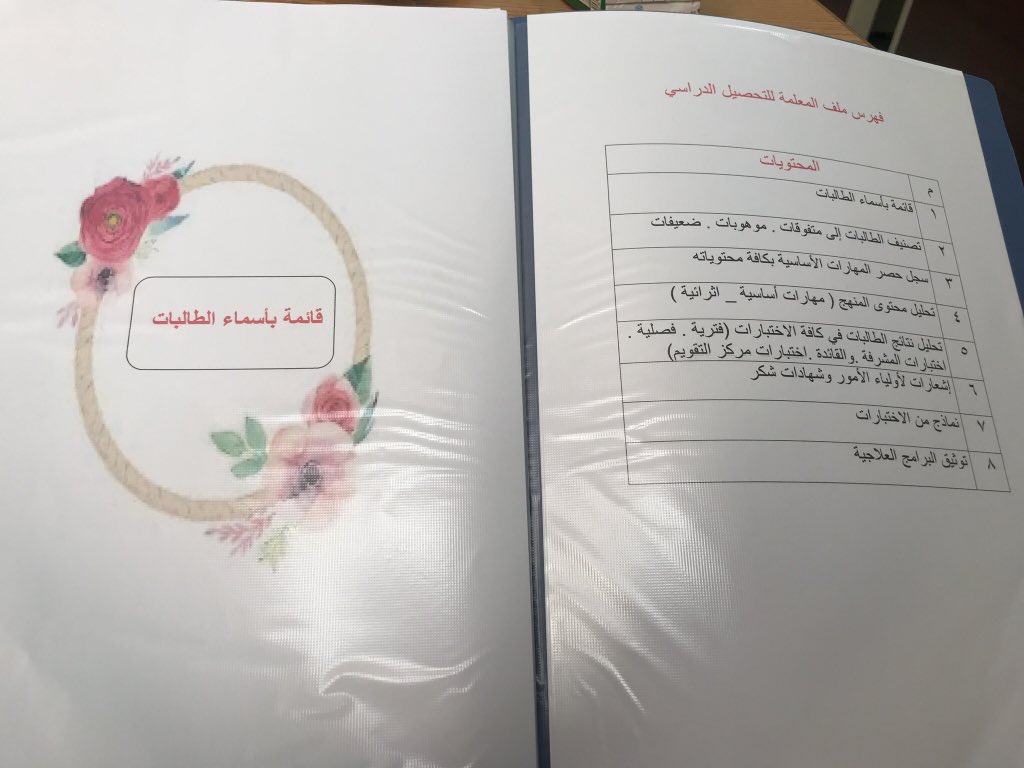 فهرس ملف المعلمة للتحصيل الدراسي
م المحتويات
١ قائمة بأسماء الطالبات
٢ تصنيف الطالبات إلى متفوقات . موهوبات . ضعيفات
٣ سجل حصر المهارات الأساسية بكافة محتوياته
٤ تحليل محتوى المنهج ( مهارات أساسية _ اثرائية )
٥ تحليل نتائج الطالبات في كافة الاختبارات (فترية . فصلية .
اختبارات المشرفة .والقائدة .اختبارات مركز التقويم)
٦ إشعارات لأولياء الأمور وشهادات شكر
٧ نماذج من الاختبارات
٨ توثيق البرامج العلاجية
قائمة بأسماء الطالبات